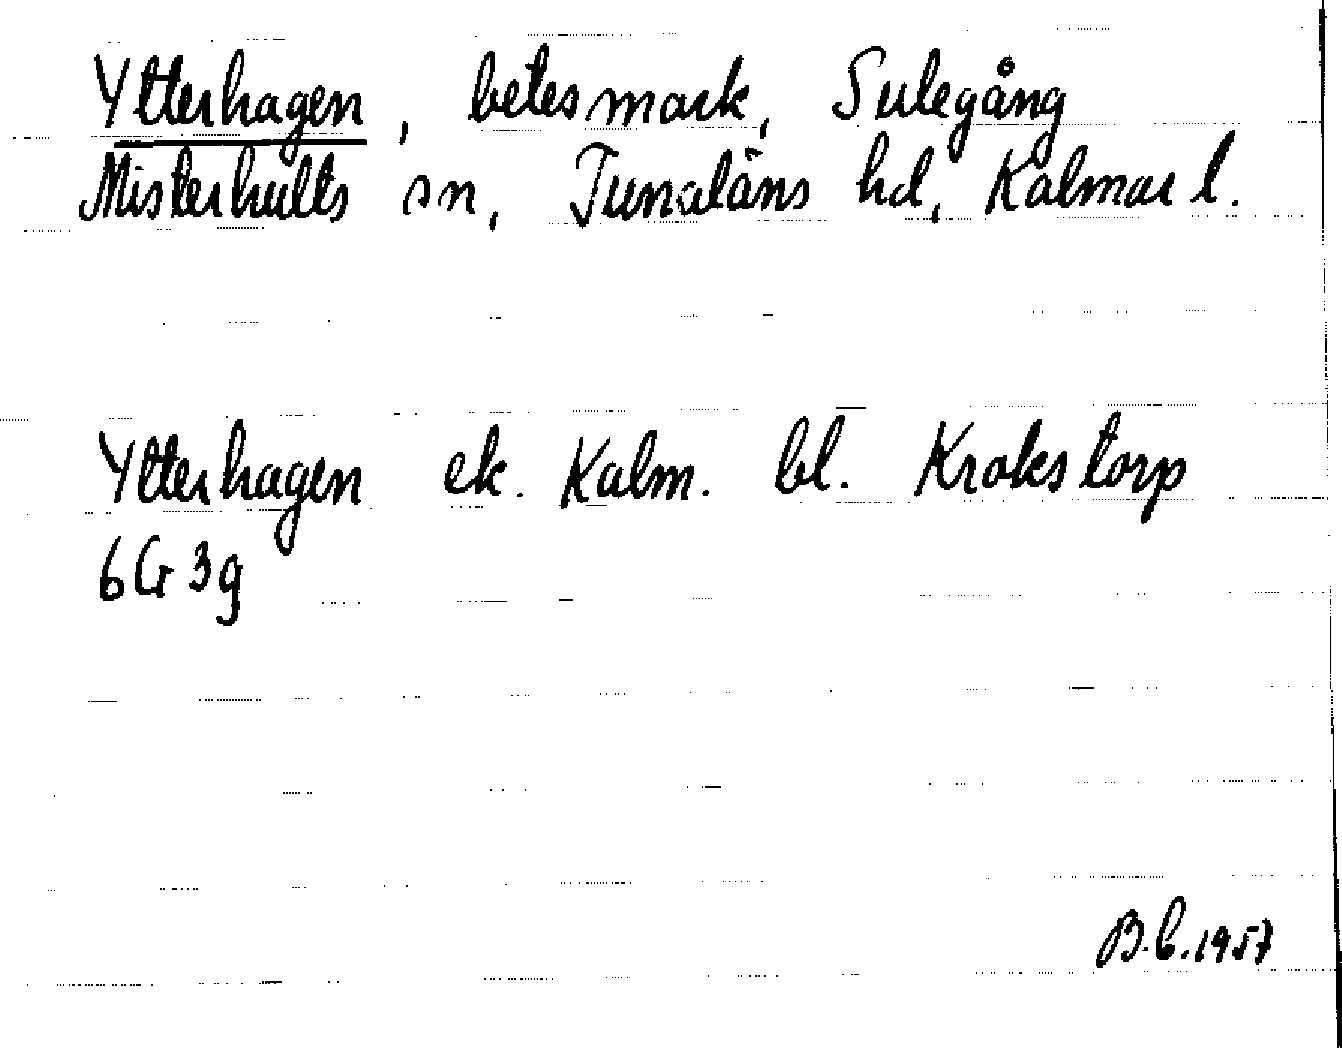 Ytterhagen, betesmark, Sulegång
Misterhults sn, Tunaläns hd, Kalmar l.
Ytterhagen ek. Kalm. bl. Krokstorp
6G 3g
B.C. 1957